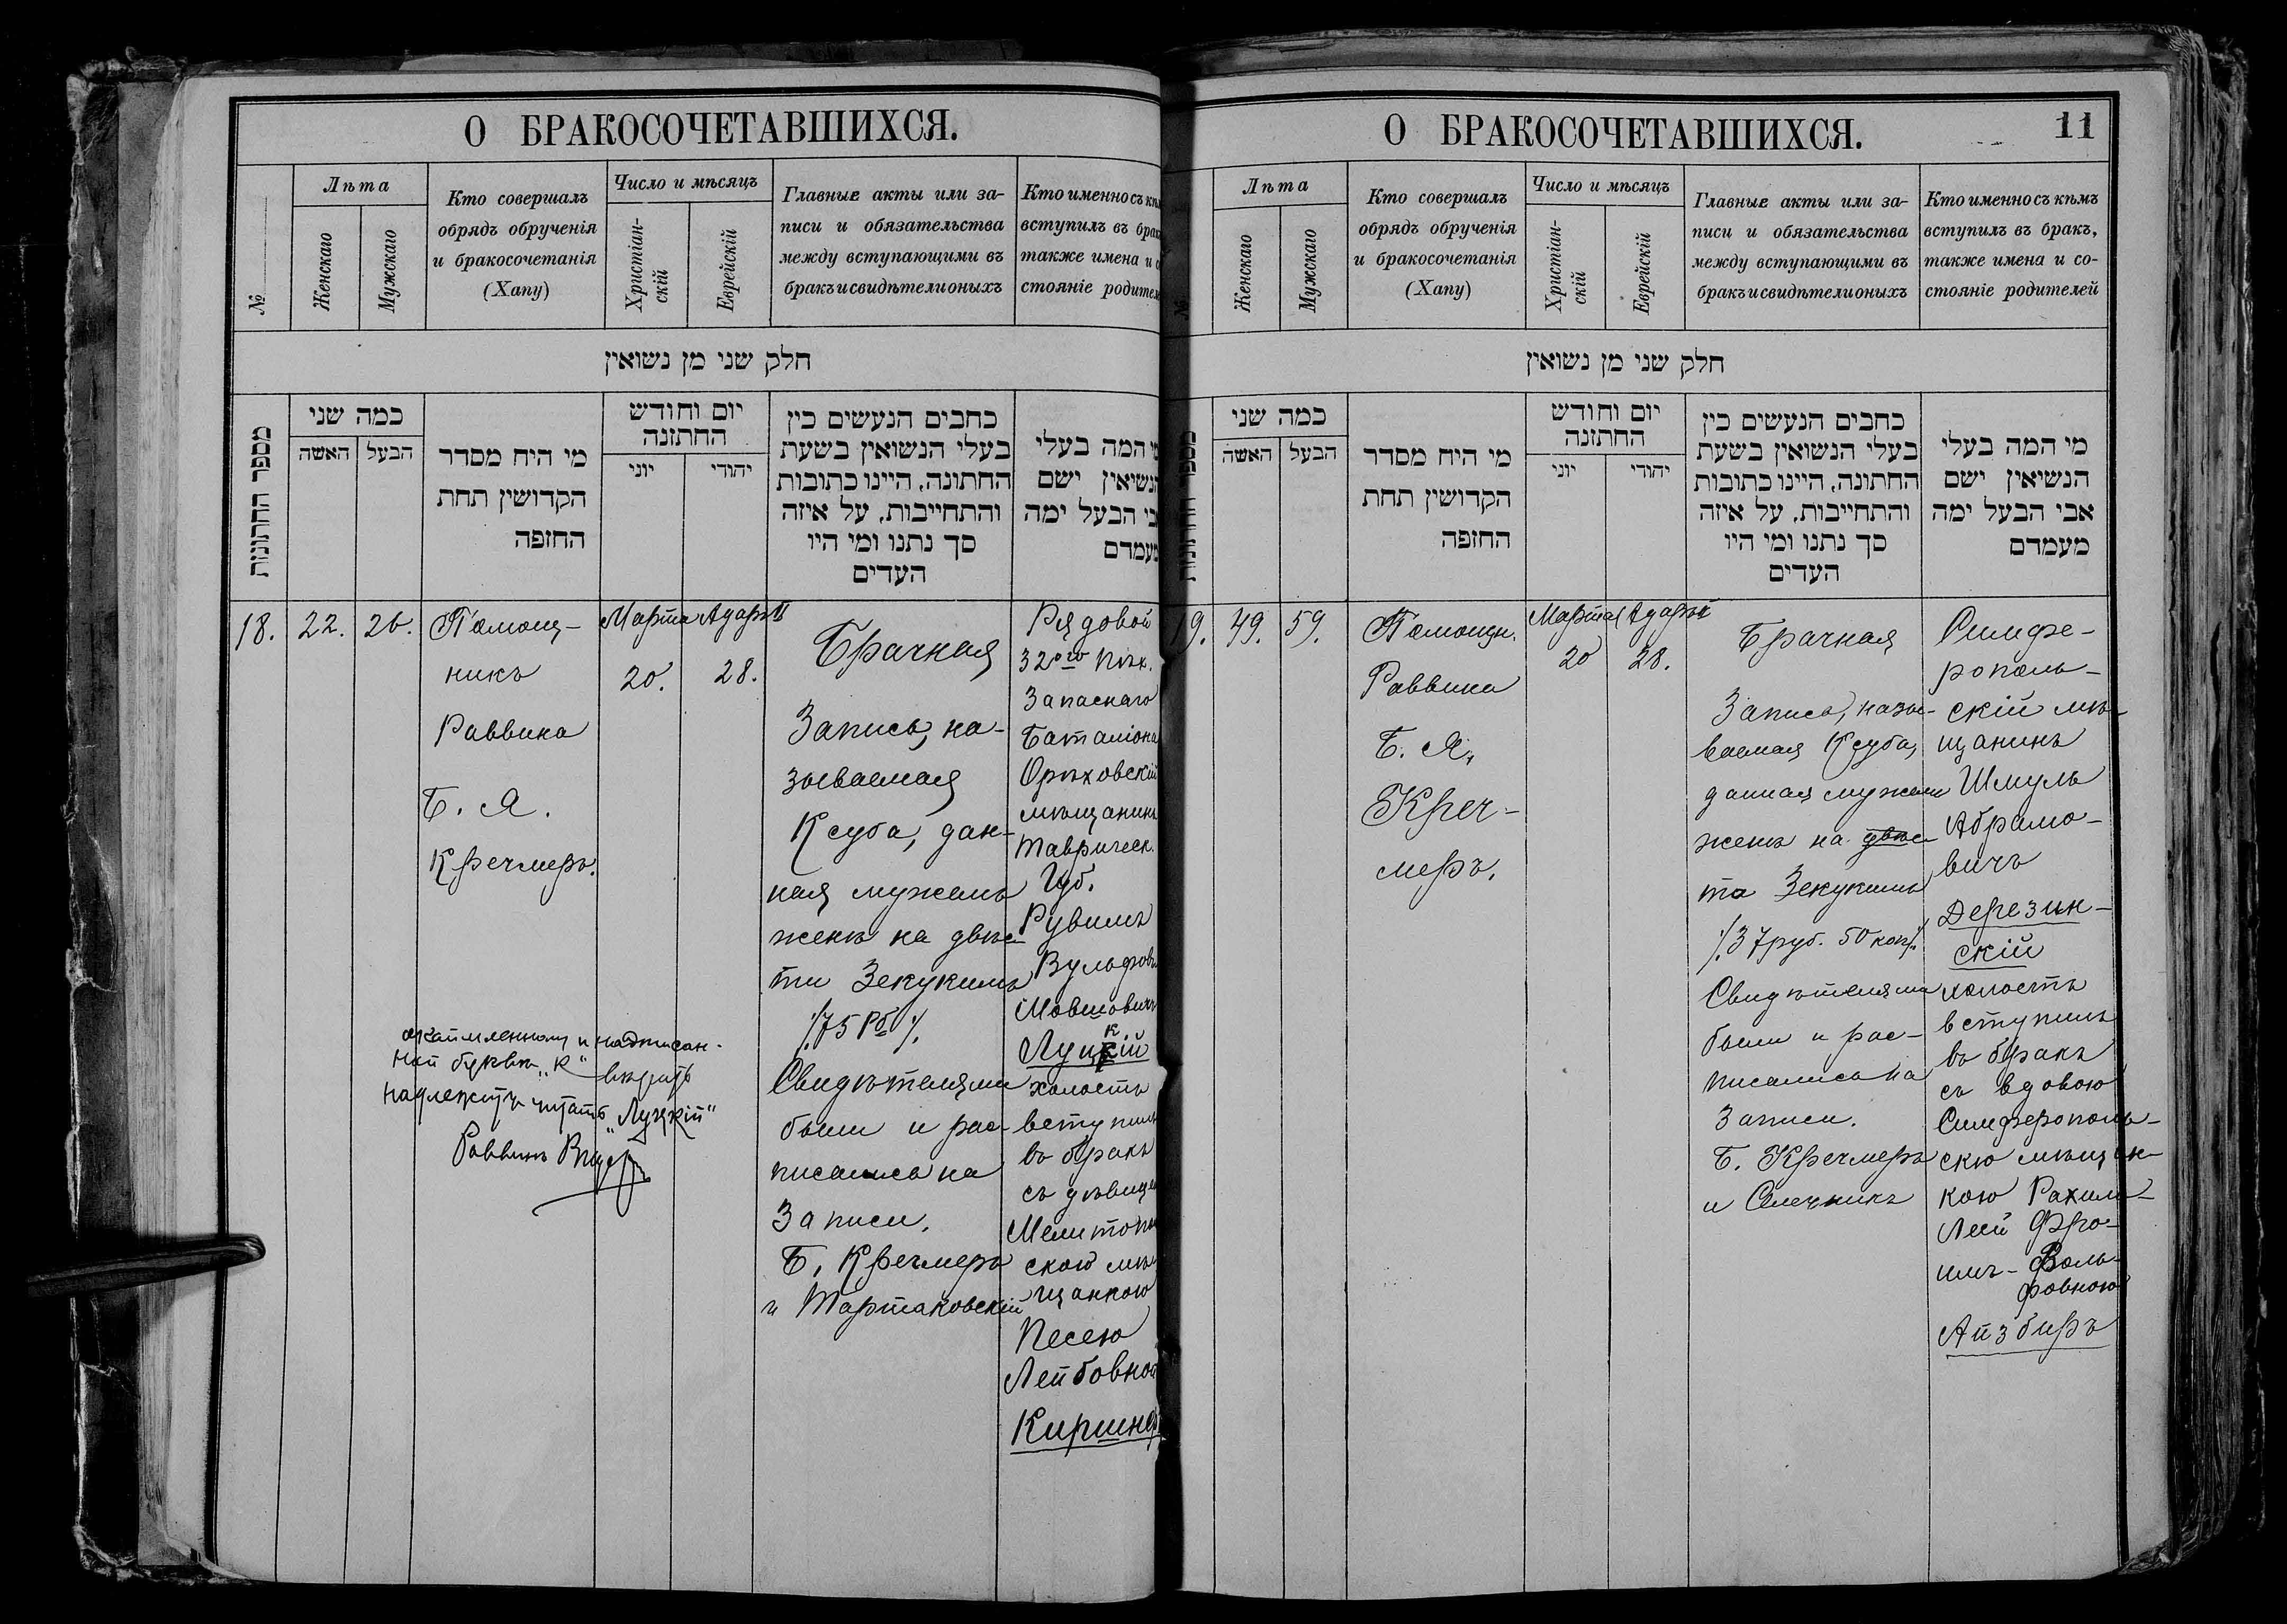 О БРАКОСОЧЕТАВШИХСЯ.
№
Лѣта
Женскаго
Мужскаго
Кто совершалъ
обрядъ обрученія
и бракосочетанія
(Хапу)
Число и мѣсяцъ
Христіан-
скій
Еврейскій
Главные акты или за-
писи и обязательства
между вступающими въ
бракъ и свидѣтели оныхъ
Кто именно съ кѣм
вступилъ въ брак
также имена и с
стояніе родител
חלק שני מן נשואין
מספר החתונות
כמה שני
האשה
הבעל
מי היח מסדר
הקדושין תחת
החזפה
יום וחודש
החתזנה
יוני
יהודי
כחבים הנעשים כין
בעלי הנשואין בשעת
החתונה, היינו כתובות
והתחייבות, על איזה
סך נתנו ומי היו
העדים
מי המה בעלי
הנשיאין ישם
אבי הבעל ימה
מעמדם
18.
22.
26.
Помощ-
никъ
Раввина
Б. Я.
Кречмеръ.
Марта
20.
Адаръ II
28.
Брачная
Запись, на-
зываемая
Ксуба, дан-
ная мужемъ
женѣ на двѣс-
ти Зекукимъ
/.75 Рб/.
Свидѣтелями
были и рас-
писались на
Записи.
Б. Кречмеръ
и Тартаковскій
Рядовой
32ого Пѣх.
Запаснаго
Баталіона
Орѣховскій
мѣщанинъ
Таврическ.
Губ.
Рувимъ
Вульфовъ
Мовшовичъ
Луцкій
к
холостъ
вступилъ
въ бракъ
съ дѣвице
Мелитопо
ской мѣ
щанкою
Песею
Лейбовной
Киршнер
и надписан-
ной буквѣ „к" вѣрить
надлежитъ читать „Луцкій"
Раввинъ
О БРАКОСОЧЕТАВШИХСЯ.
11
№
Лѣта
Женскаго
Мужскаго
Кто совершалъ
обрядъ обрученія
и бракосочетанія
(Хапу)
Число и мѣсяцъ
Христіан-
скій
Еврейскій
Главные акты или за-
писи и обязательства
между вступающими въ
бракъ и свидѣтели оныхъ
Кто именно съ кѣмъ
вступилъ въ бракъ,
также имена и со-
стояніе родителей
חלק שני מן נשואין
מספר החתונות
כמה שני
האשה
הבעל
מי היח מסדר
הקדושין תחת
החזפה
יום וחודש
החתזנה
יוני
יהודי
כחבים הנעשים כין
בעלי הנשואין בשעת
החתונה, היינו כתובות
והתחייבות, על איזה
סך נתנו ומי היו
העדים
מי המה בעלי
הנשיאין ישם
אבי הבעל ימה
מעמדם
19.
49.
59.
Помощн.
Раввина
Б. Я.
Креч-
меръ.
Марта
20
Адаръ II
28.
Брачная
Запись, назы-
ваемая Ксуба,
данная мужемъ
женѣ на
та Зекукимъ
/.37руб. 50 коп/.
Свидѣтелями
были и рас-
писались на
Записи.
Б. Кречмеръ
и Олечникъ
Симфе-
рополь-
скій мѣ-
щанинъ
Шмуль
Абрамо-
вичъ
Дерезин-
скій
холостъ
вступилъ
въ бракъ
съ вдовою
Симферополь-
скю мѣщан-
кою Рахиль-
Леей Фро-
имъ-Воль-
фовною
Айзбиръ